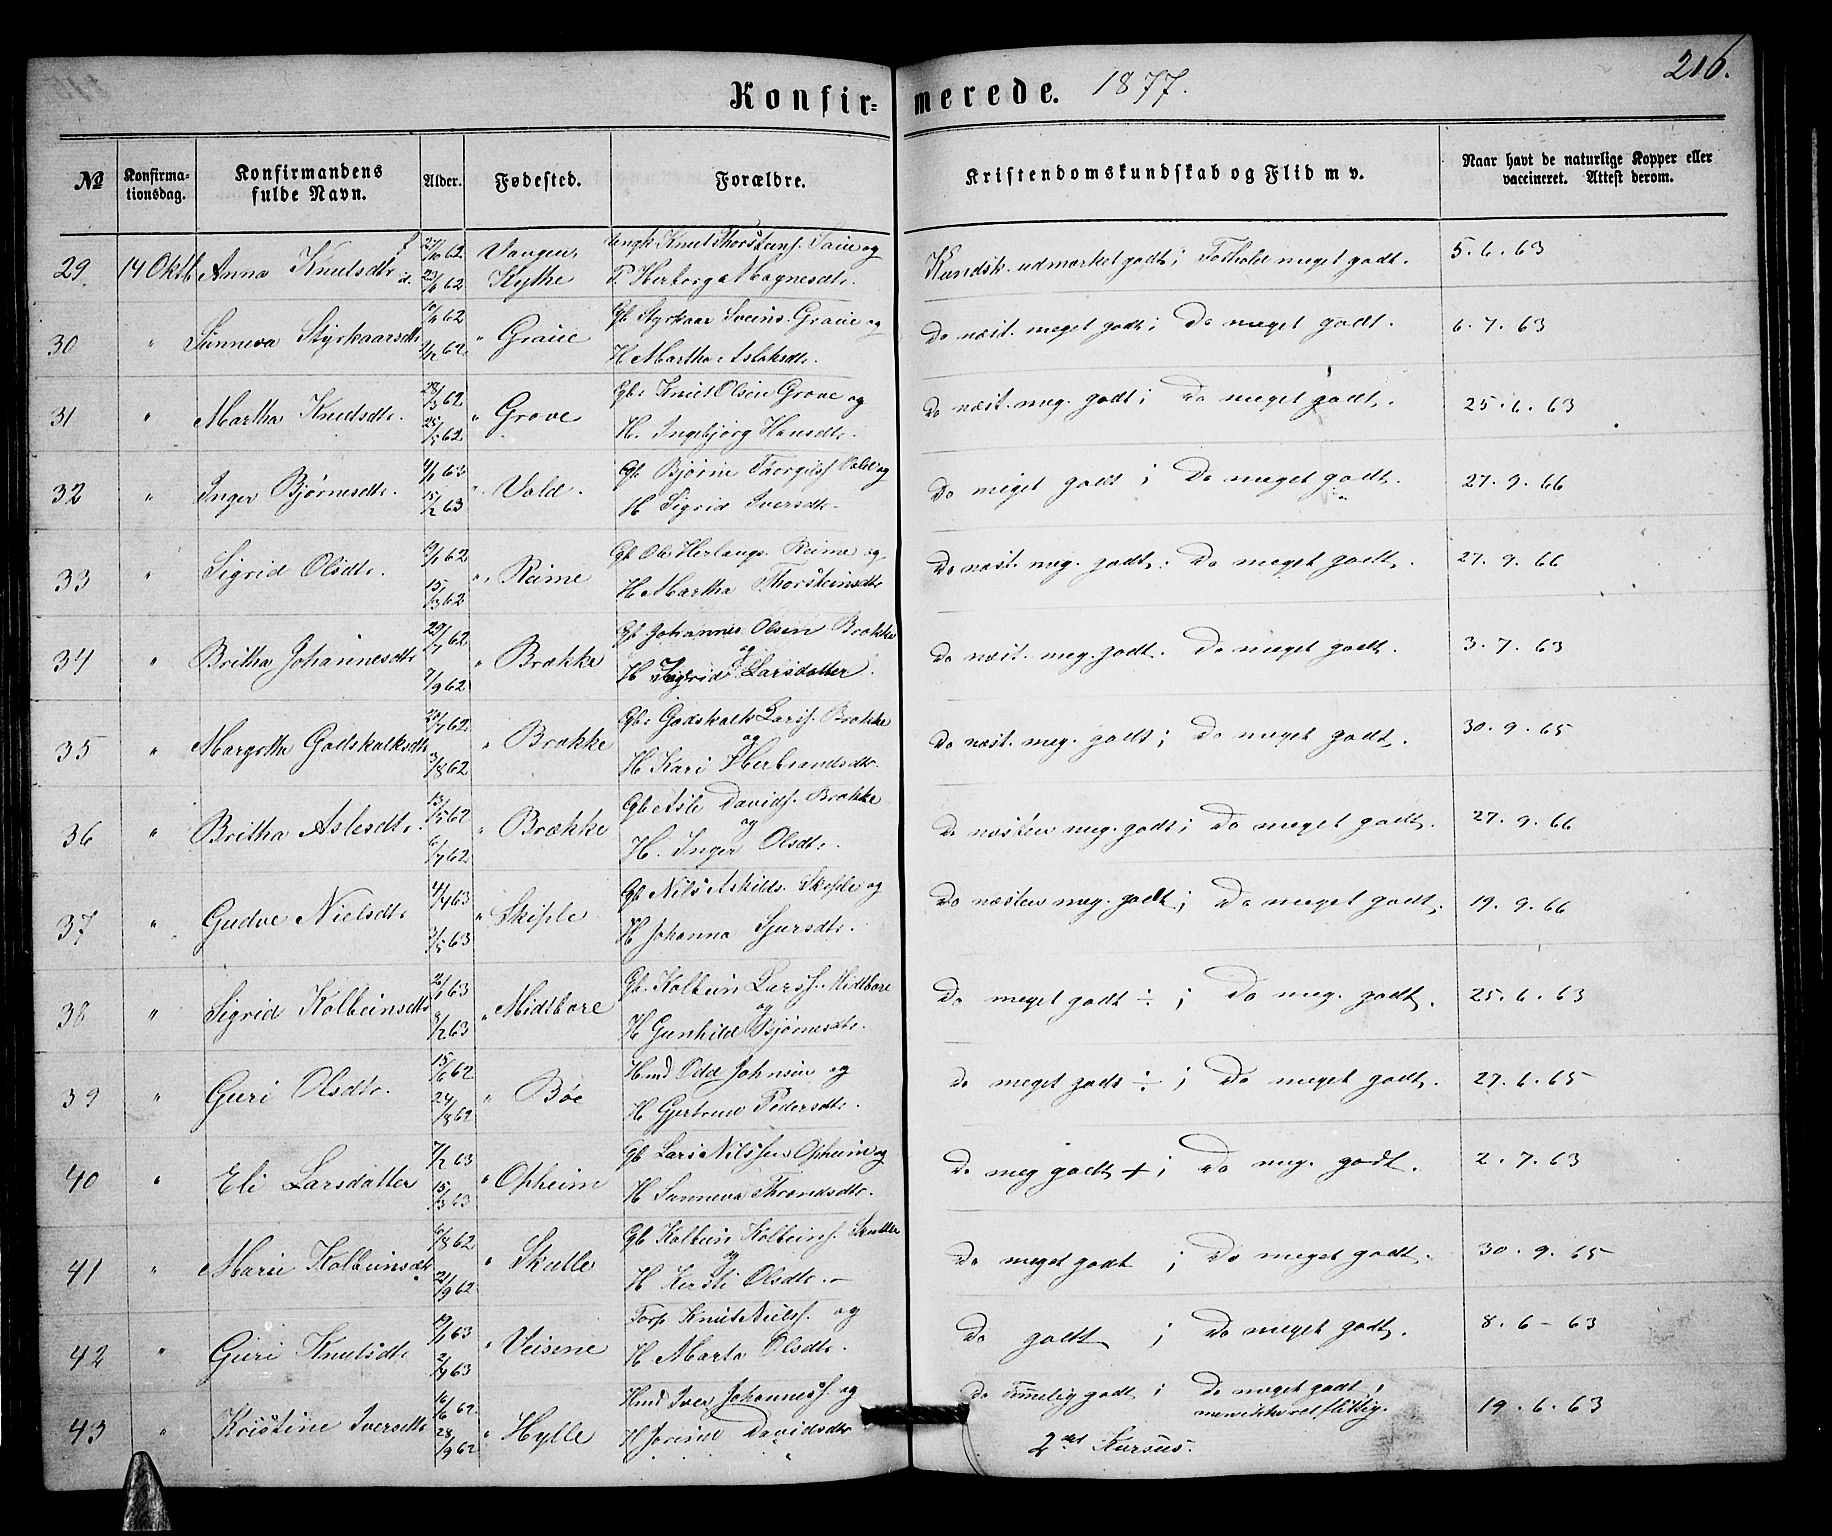 216.
Konfir-merede. 1877.
No Konfirmationsdag. Konfirmandens fulde Navn. Alder. Fødested. Forældre. Kristendomskundskab og Flid m v. Naar havt de naturlige Kopper eller vaccineret. Attest derom.
29. 14 Oktb Anna Knutsdtr f. 27/10 62 d. 62 Vangen, Kythe Ungk. Knut Thorsteins. Saue og P. Herborg Magnesdtr. Kundsk. udmærket godt; Forhold meget godt. 5. 6. 63
30 " Sunneva Styrkaarsdtr 62 62 " Graue Gb. Styrkaar Sveins. Graue og H Martha Aslaksdtr. Do næst. meget godt; Do meget godt. 6. 7. 63
31 " Martha Knutsdtr. 28/3 62 25/5 62 " Grove Gbr Knut Olsen Grove og H. Ingebjørg Hansdtr. Do næst. meg. godt; Do meget godt. 25. 6. 63
32 " Inger Bjørnesdtr. 4/1 63 15/2 63 " Vold. Gb. Bjørne Thorgilss. Vold og H Sigrid Iversdtr. Do meget godt; Do meget godt. 27. 9. 66
33 " Sigrid Olsdtr. 62 15/3 62 " Reime Gb Ole Herlaugs. Reime og H Martha Thorsteinsdtr Do næst. meg. godt. Do meget godt. 27. 9. 66
34 " Britha Johannesdtr 29/7 62 7/9 62 " Brække Gb Johannes Olsen Brække og H Sigrid Larsdatter. Do næst. meg. godt. Do meget godt. 3. 7. 63
35 " Margrtha Godskalksdtr 62 3/8 62 " Brække Gbr Godskalk Larss. Brække og H Kari Herbrandsdtr. Do næst. meg. godt; Do meget godt. 30. 9. 65
36 " Britha Aslesdtr. 13/5 62 6/7 62 " Brække Gb Asle Davids. Brække og H. Inger Olsdtr. Do næsten meg. godt; Do meget godt. 27. 9. 66
37 " Gudve Nielsdtr 4/4 63 3/5 63 " Skiple Gb Nils Askilds. Skiple og H Johanna Sjursdtr. Do næsten meg. godt; Do meget godt. 19. 9. 66
38 " Sigrid Kolbeinsdtr 2/1 63 8/2 63 " Midtbøre Gb. Kolbein Larss. Midtbøre og H Gunhild Bjørnesdtr. Do meget godt ÷; Do meg. godt. 25. 6. 63
39 " Guri Olsdtr. 15/6 62 24/8 62 " Bøe Hmd Odd Johnsen og H Gjertrud Pedersdtr. Do meget godt ÷; Do meget godt. 27. 6. 65
40 " Eli Larsdatter 7/2 63 15/3 63 " Opheim Gb Lars Nilssen Opheim og H Sunneva Throndsdtr. Do meg godt +; Do meg. godt. 2. 7. 63
41 " Mari Kolbeinsdtr 6/8 62 21/9 62 " Skulle Gb Kolbein Kolbeins. Skulle og H Kirsti Olsdtr. Do meget godt; Do meget godt. 30. 9. 65
42 " Guri Knutsdtr 19/1 63 2/4 63 " Veisene Forp Knut Nielss. og H Marta Olsdtr. Do godt; Do meget godt. 8. 6 - 63
43 " Kristine Iversdtr 16/6 62 28/9 62 " Hylle Hmd Iver Johanness. og H Jorind Davidsdtr Do Temmelig godt; Do meget godt, men ikke ret flittig. 19. 6. 63
2det Kursus.